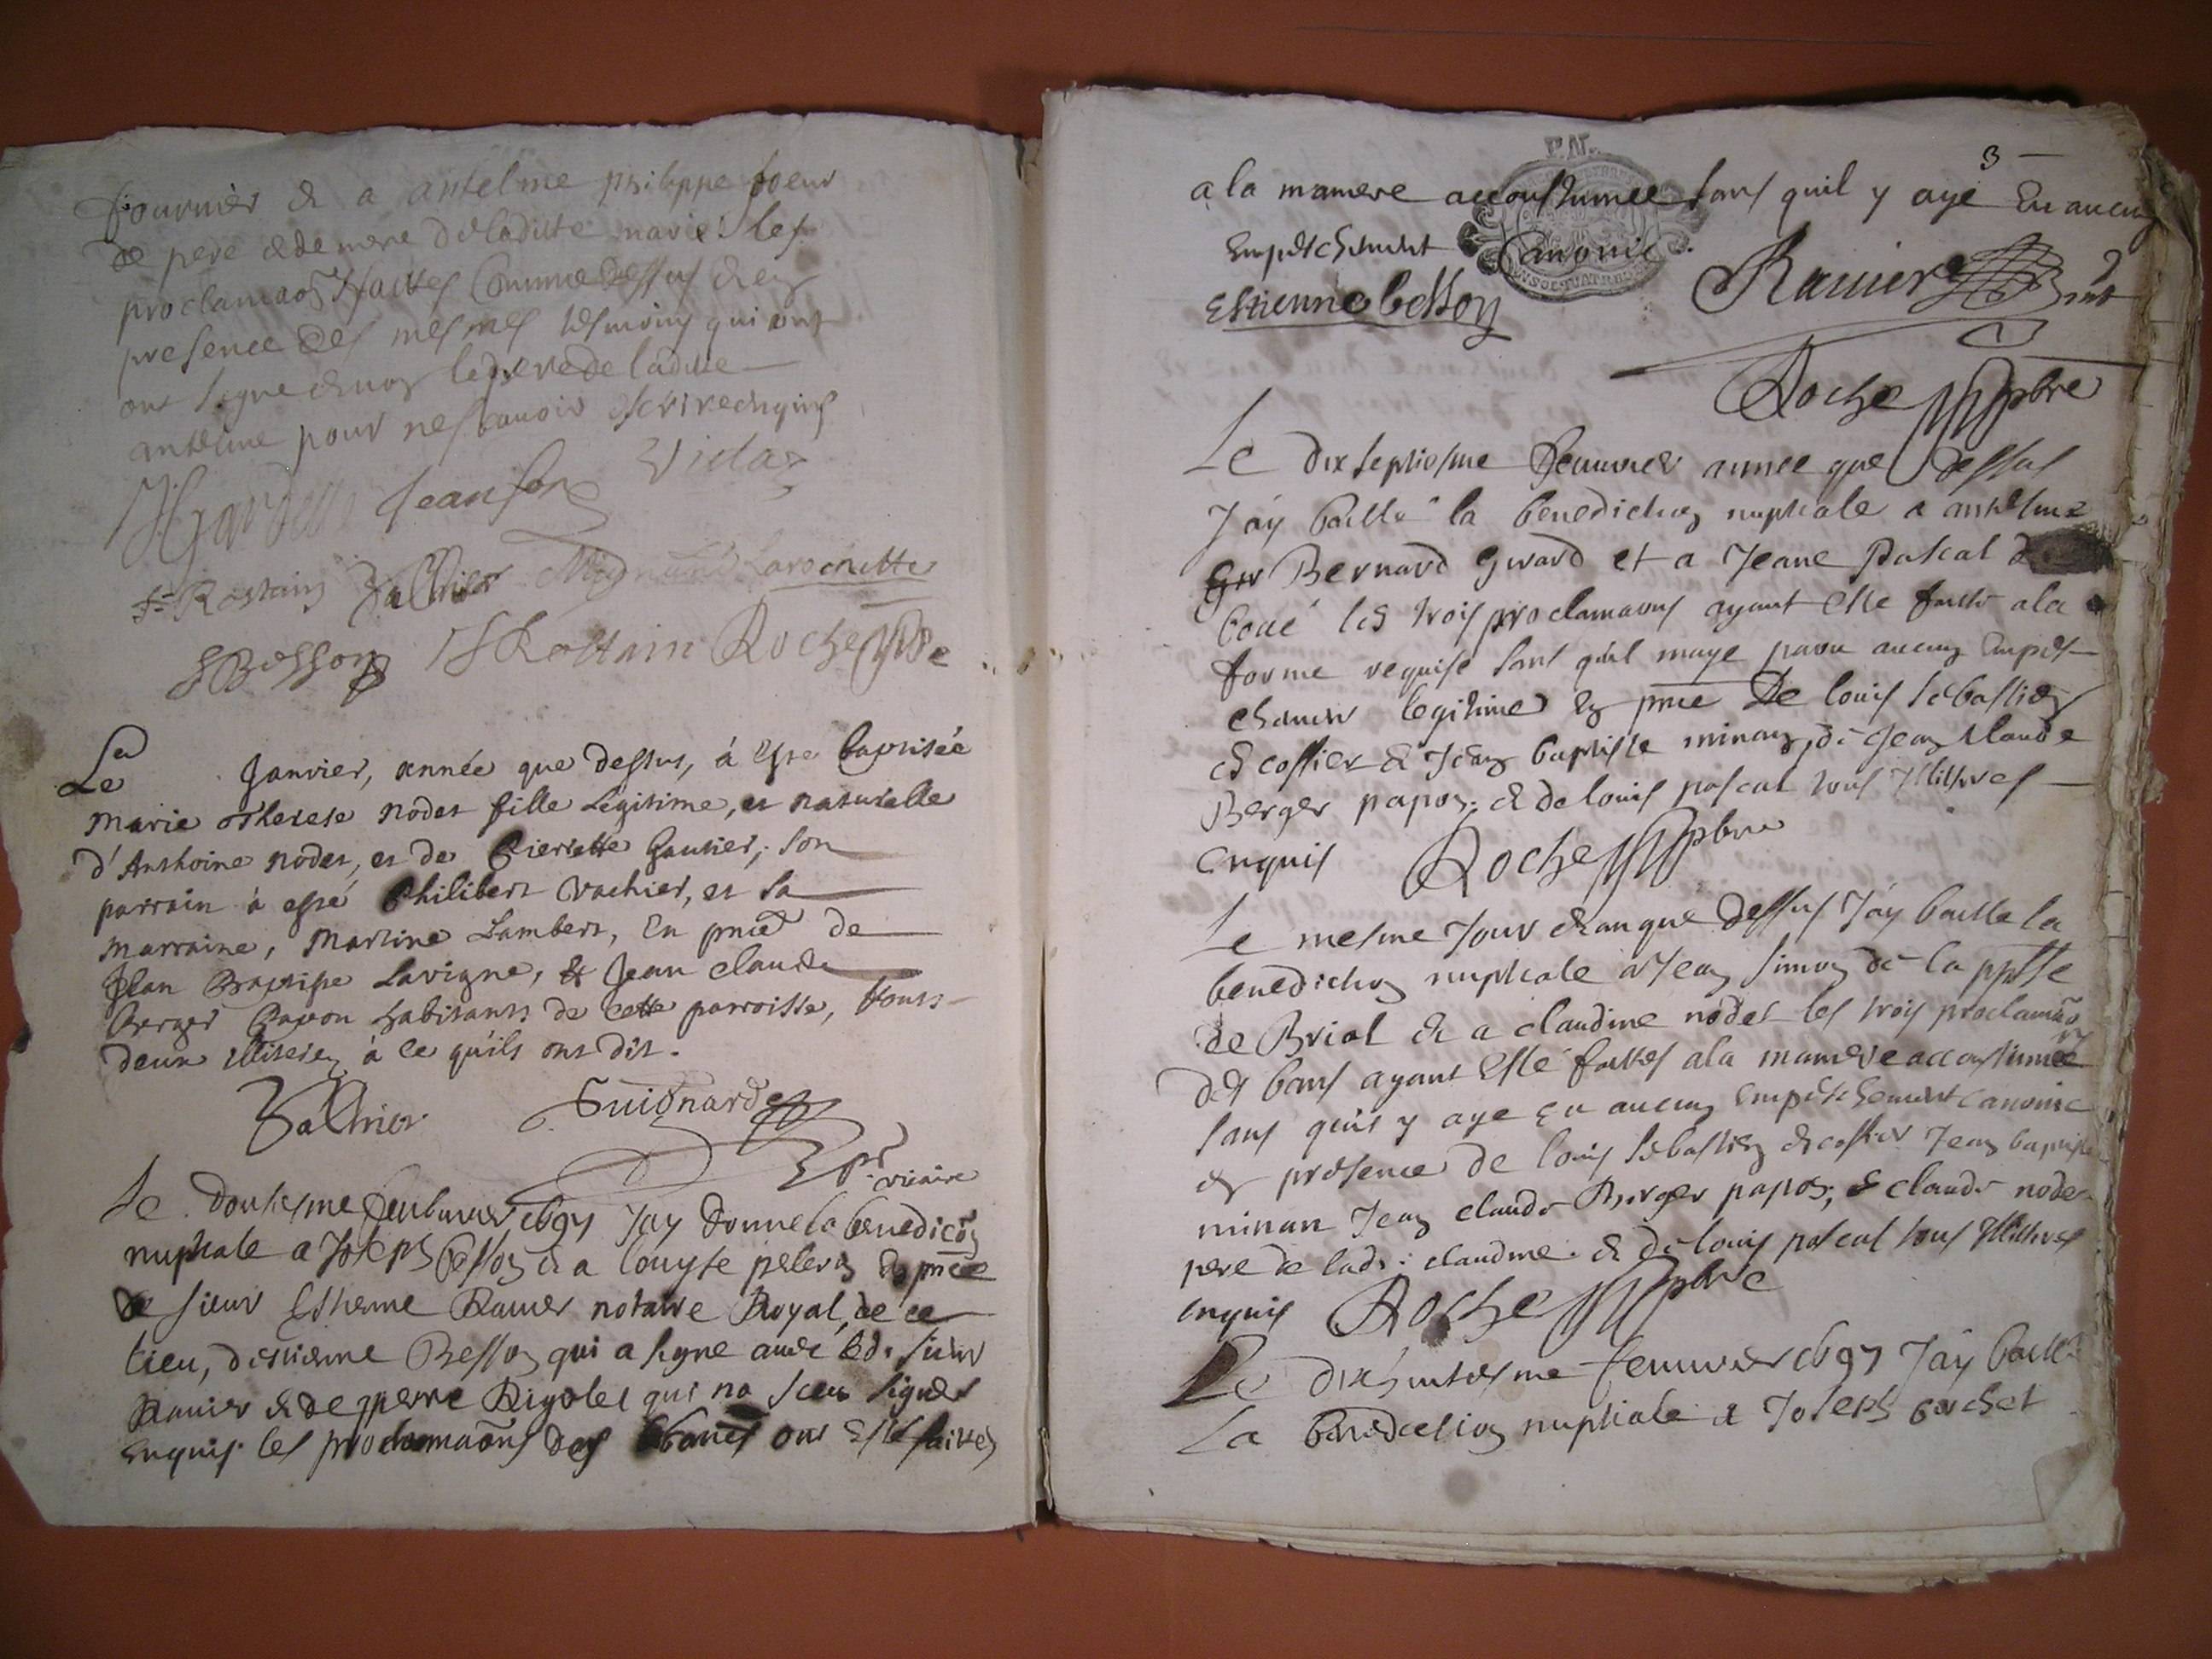 fournier & a antelme philippe soeur
de pere & de mere de ladite marie les
proclamaõs faites Comme dessus & en
presence des mesmes tesmoins qui ont
ont signe & non le pere de ladite
antelme pour ne scavoir escrire enquis
Jean
Rostain Vallier Larochette
Besson Rostain Roche pbre
Le Janvier, année que dessus, à esté baptisée
Marie Therese Nodet fille Legitime, et naturelle
d'Anthoine Nodet, et de Pierrette Gautier; son
parrain à esté Philibert Vachier, et sa
marraine, Martine Lambert, En pnce de
Jean Baptiste Lavigne, & Jean Claude
Berger Papon habitants de Cette parroisse, tous
deux Illiterez à ce qu'ils ont dit.
Vallier Guignard
vicaire
Le douziesme febvrier 1697 Jay donne la benedicõn
nuptiale a Joseph Besson & a Louyse En pnce
de sieur Estienne Ravier notaire Royal, de ce
lieu, d'estienne Besson qui a signe avec led. sieur
Ravier & de pierre Rigolet qui na sceu signer
Enquis les proclamaõns des bancs ont Esté faites
3
a la maniere accoustumee sans quil y aye Eu aucun
Empeschement Canonic.
Estienne besson Ravier
Roche pbre
Le dix septiesme feuvrier annee que dessus
J'ay baillé la benediction nuptiale a anthelme
Bernard Girard et a Jeane Pascal
les trois proclamaons ayant esté faite a la
forme requise sans qu'il maye paru aucun Empes
chement legitime En pnce De louis sebastien
& Jean baptiste minan, de Jean Claude
Berger papon. & de louis pascal tous Illitires
Enquis Roche pbre
Le mesme Jour & an que dessus J'ay baille la
benediction nuptiale a Jean simon de la ppsse
de Briol & a claudine nodet les trois proclamãons
des bans ayant Esté faittes a la maniere accoustumée
sans qu'il y aye Eu aucun Empeschement Canonic
En presence de louis sebastien Jean baptiste
minan Jean claude Berger papon, & claude nodet
pere de lad: claudine. & de louis pascal tous Illitires
Enquis Roche pbre
Le dixhuitiesme feuvrier 1697 J'ay baillé
La benediction nuptiale a Joseph